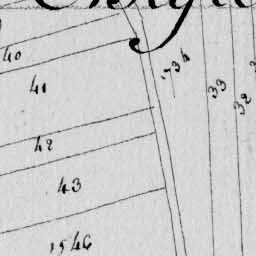 40
41
1734
33
32
42
43
1546